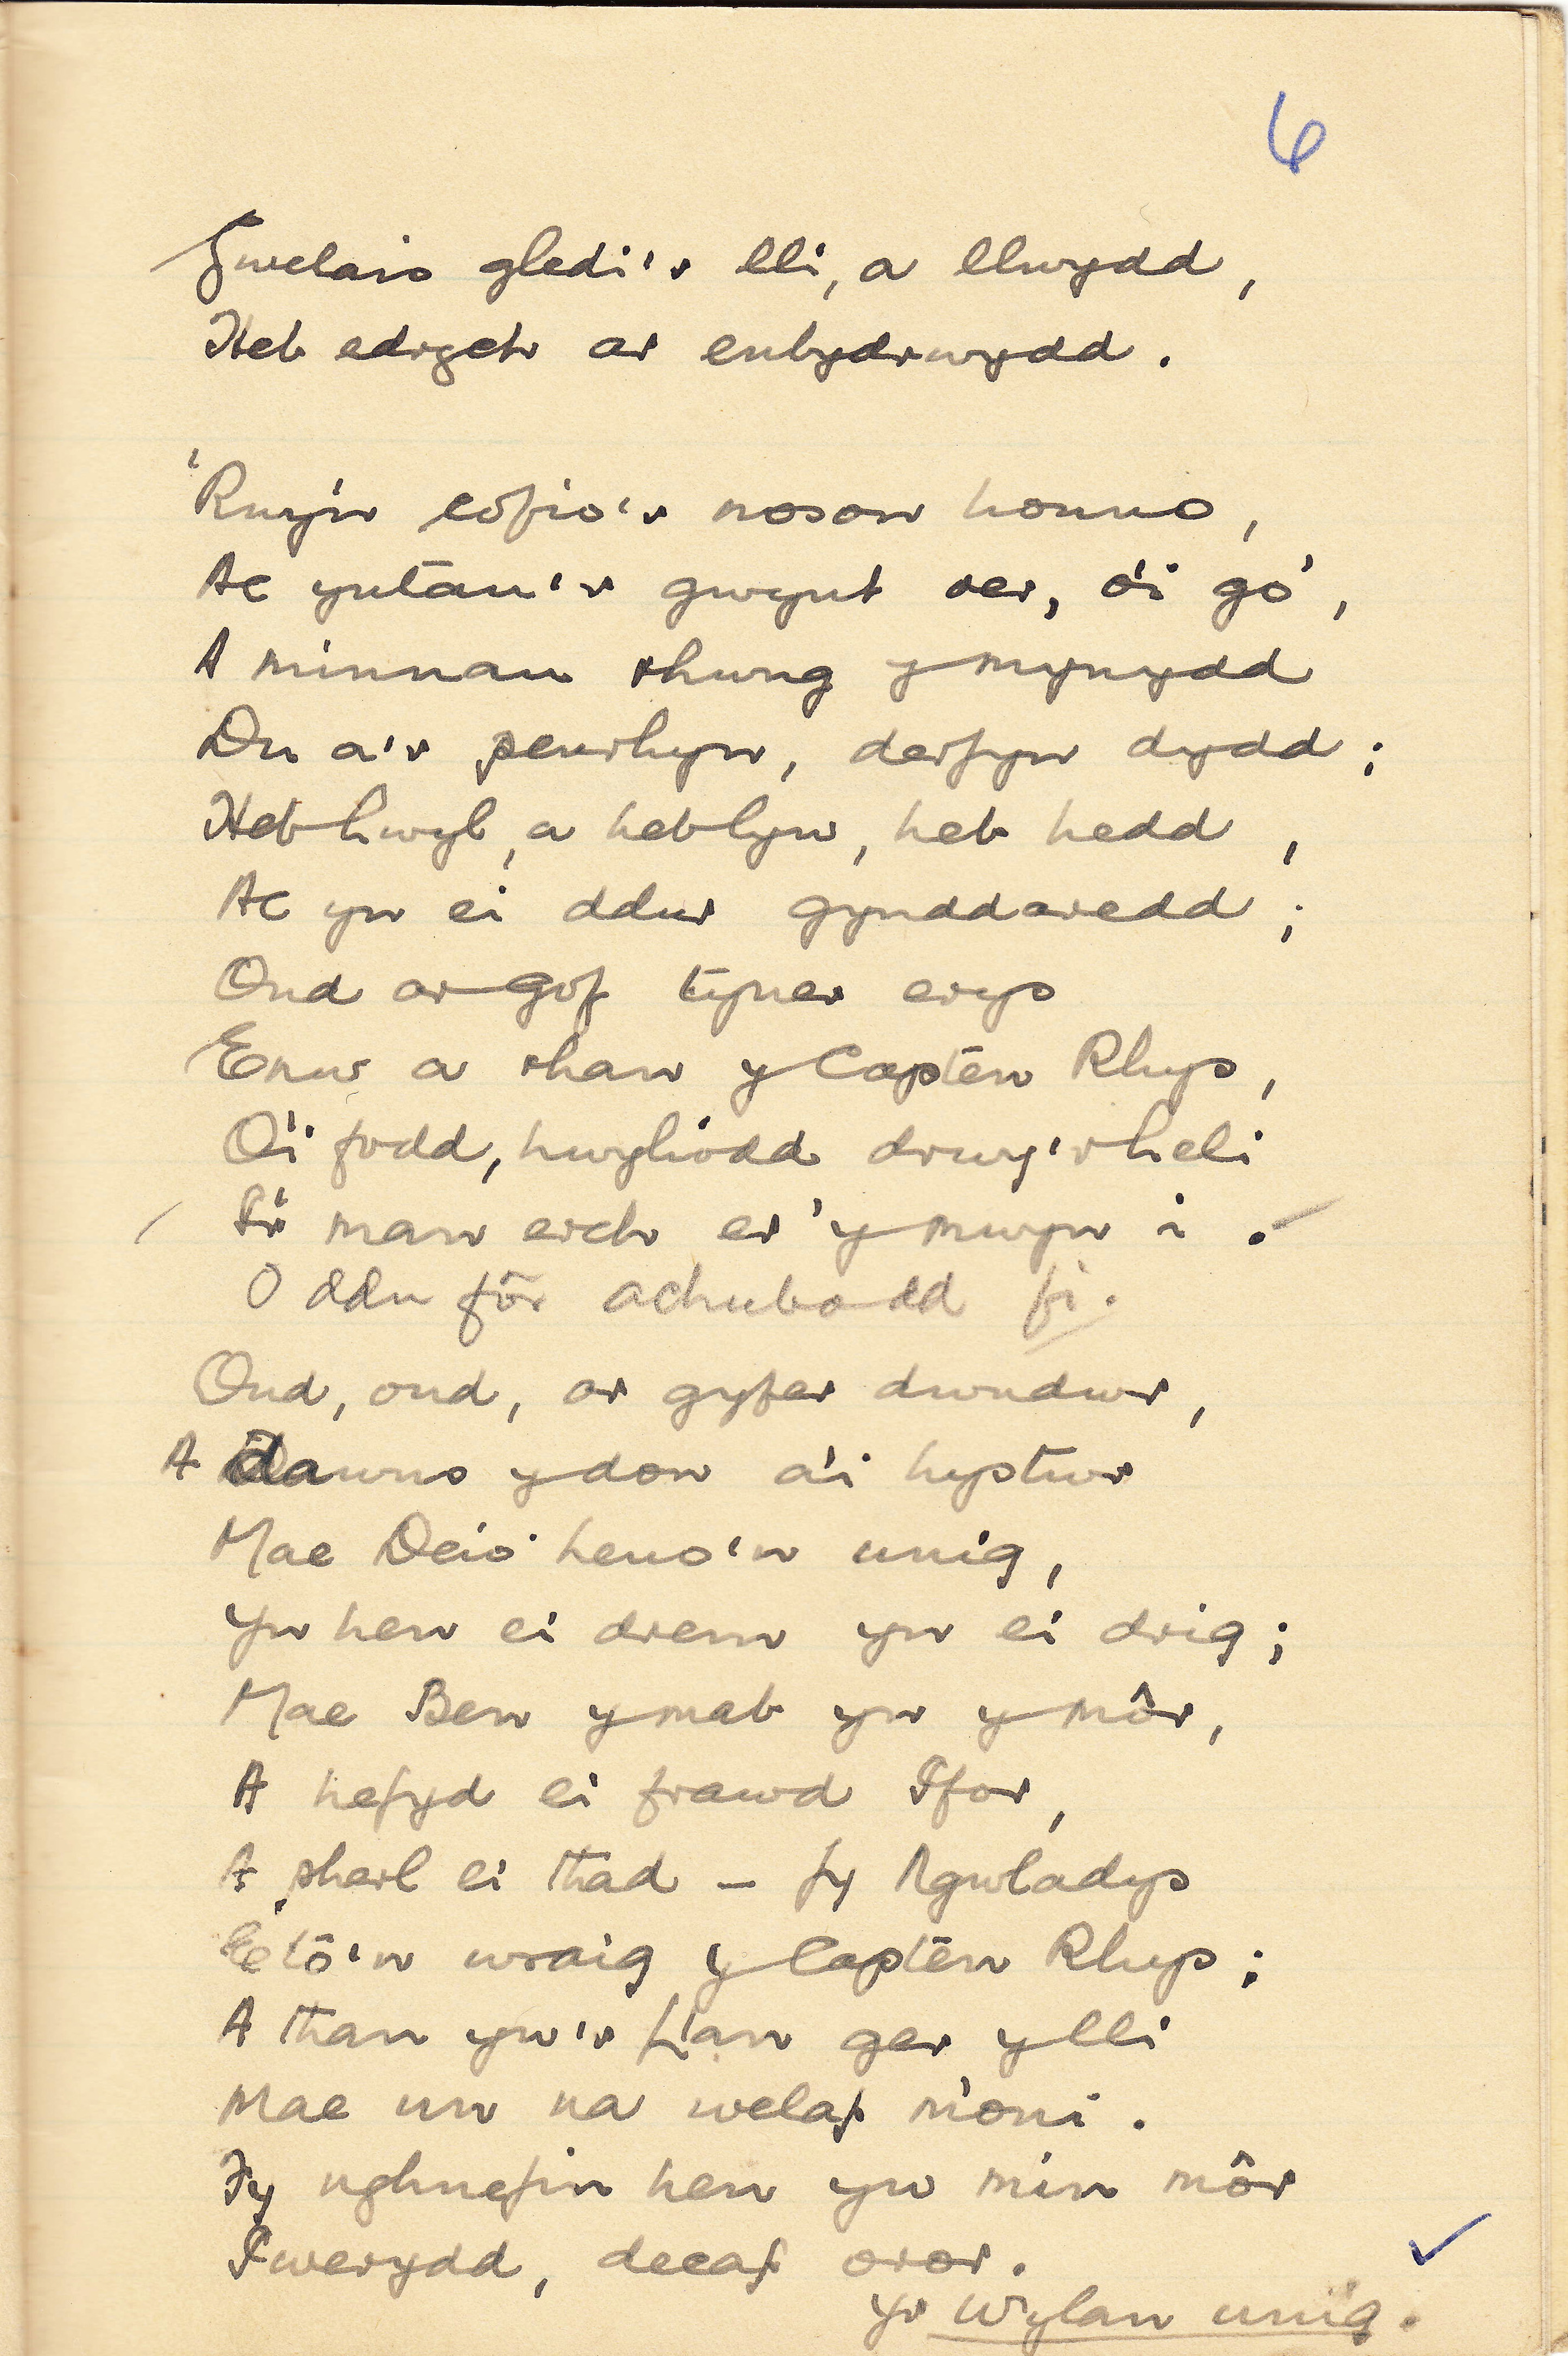 6
Gwelais gledi'r lli, a llwydd,
Heb edrych ar enbydrwydd.
'Rwy'n cofio'r noson honno,
Ac yntau'r gwynt oer, o'i go',
A minnau rhwng y mynydd
Du a'r penrhyn, derfyn dydd;
Heb hwyl, a heb lyw, heb hedd,
Ac yn ei ddwr gynddaredd;
Ond ar gof tyner erys
Enw a rhan y Capten Rhys,
O'i fodd, hwyliodd drwy'r heli
I'r man erch er 'y mwyn i.
O ddu fôr achubodd fi.
Ond, ond, ar gyfer dwndwr,
A dawns y don a'i hystwr
Mae Deio heno'n unig,
Yn hen ei drem yn ei drig;
Mae Ben y mab yn y môr,
A hefyd ei frawd Ifor,
A pherl ei thad - fy Ngwladys
Eto'n wraig y Capten Rhys;
A than yw'r llan ger y lli
Mae un na welaf m'oni.
Fy nghnefin hen yw min môr
Iwerydd, decaf oror.
Yr Wylan unig.